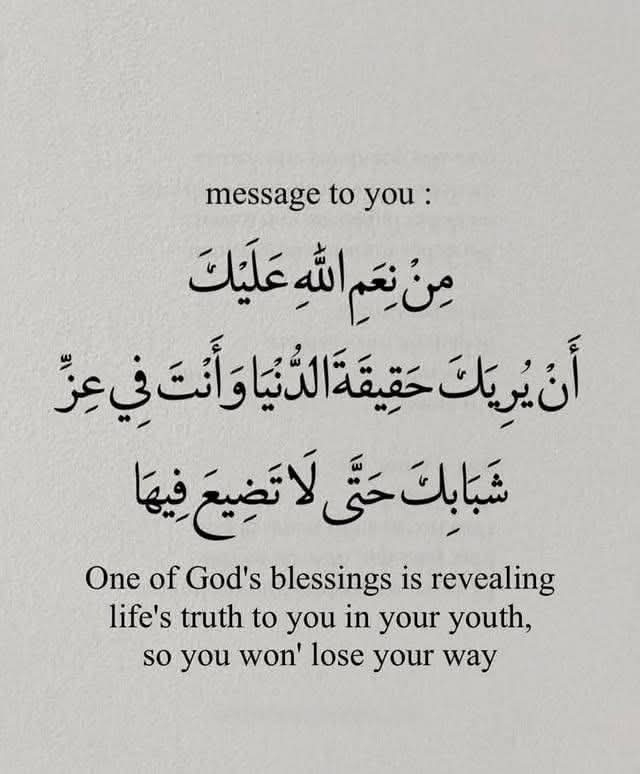 message to you :
مِنْ نِعَمِ اللّٰهِ عَلَيْكَ
أَنْ يُرِيَكَ حَقِيقَةَ الدُّنْيَا وَأَنْتَ فِي عِزِّ
شَبَابِكَ حَتَّى لَا تَضِيعَ فِيهَا
One of God's blessings is revealing
life's truth to you in your youth,
so you won' lose your way